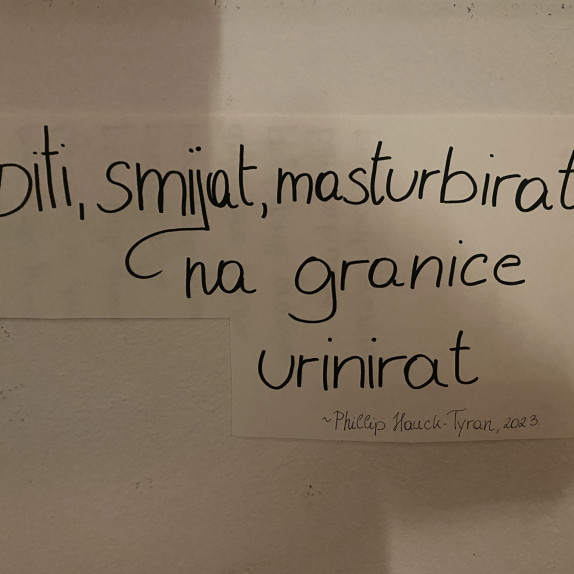 piti, smijat, masturbirat
na granice
urinirat
~Phillip Hauck-Tyran, 2023